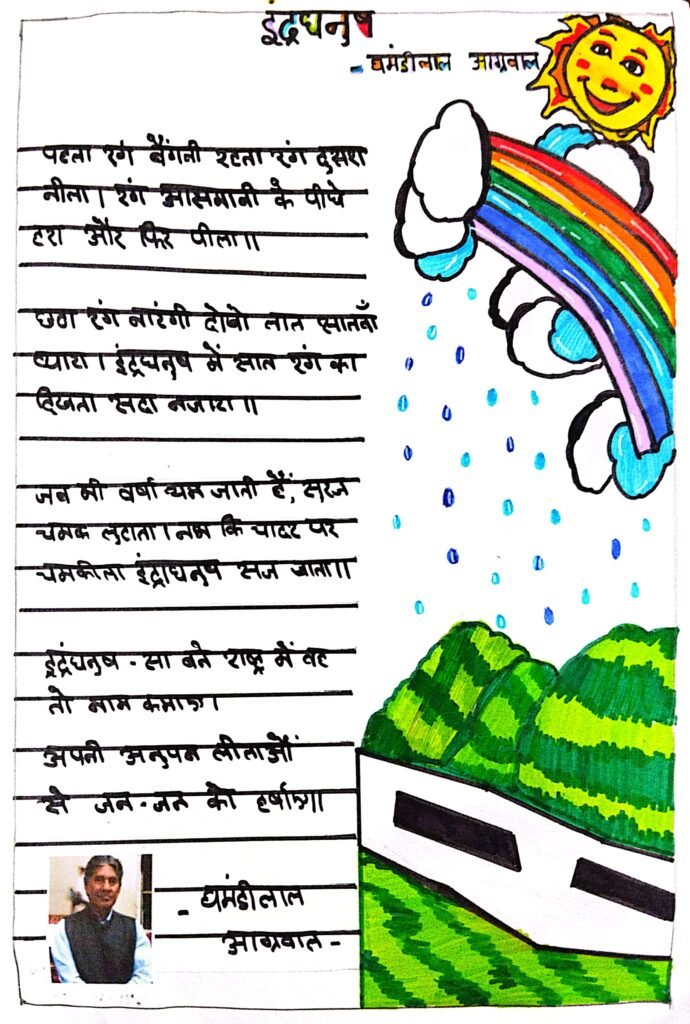 इंद्रधनुष
- घमंडीलाल आग्रवाल
पहला रंग बैंगनी रहता रंग दुसरा
नीला। रंग आसमानी के पीछे
हरा और फिर पीला॥
छठा रंग नारंगी देखो लाल सातवाँ
प्यारा। इंद्रधनुष में सात रंग का
दिखता सदा नजारा॥
जब भी वर्षा थम जाती हैं, सूरज
चमक लुटाता। नभ कि चादर पर
चमकीला इंद्राधनुष सज जाता॥
इंद्रंधनुष - सा बने राष्ट्र में वह
तो नाम कमाए।
अपनी अनुपन लीलाओं
से जन - जन को हर्षाए॥
- घमंडीलाल
आग्रवाल -